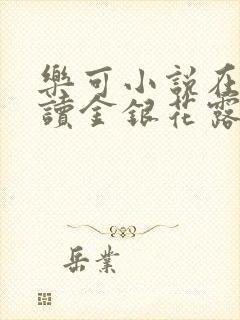 樂可小說在
讀金銀花露
岳業